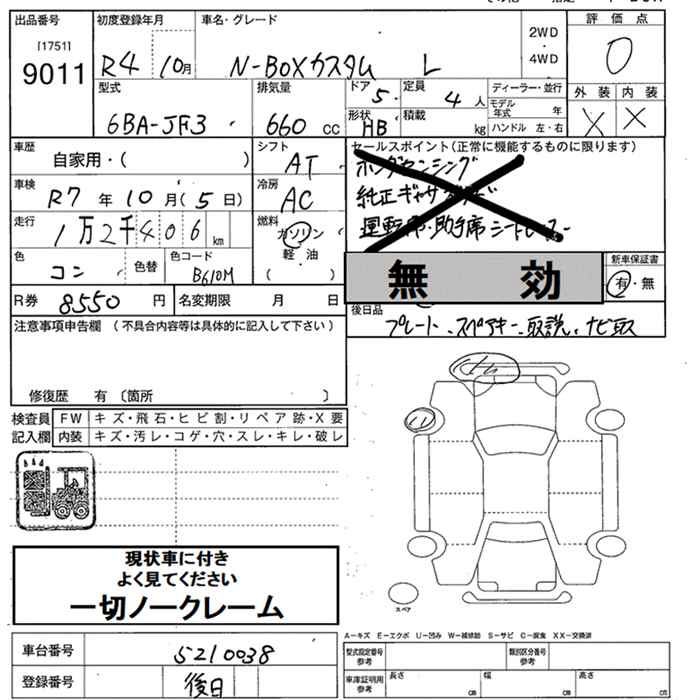 出品番号
[1751]
9011
初度登録年月
R4 10月
車名・グレード
N-BOXカスタム L
2WD
4WD
評価点
0
外装 内装
X X
型式
6BA-JF3
排気量
660 cc
ドア
5
形状
HB
定員
4 人
積載
kg
ディーラー・並行
モデル年式 年
ハンドル 左・右
車歴
自家用・( )
シフト
AT
セールスポイント(正常に機能するものに限ります)
ホンダセンシング
純正ギャザズナビ
運転席・助手席シートヒーター
無効
車検
R7年10月(5日)
冷房
AC
走行
1万2千406km
燃料
ガソリン
軽油
( )
色
コン
色替
色コード
B610M
新車保証書
有・無
R券 8550円
名変期限 月 日
後日品
プレート、スペアキー、取説、ナビ取
注意事項申告欄 (不具合内容等は具体的に記入して下さい)
修復歴 有 〔箇所 〕
検査員
記入欄
FW キズ・飛石・ヒビ割・リペア跡・X要
内装 キズ・汚レ・コゲ・穴・スレ・キレ・破レ
現状車に付き
よく見てください
一切ノークレーム
スペア
A-キズ E-エクボ U-凹み W-補修跡 S-サビ C-腐食 XX-交換済
車台番号 5210038
登録番号 後日
型式指定番号
参考
類別区分番号
参考
車庫証明用
参考
長さ cm
幅 cm
高さ cm